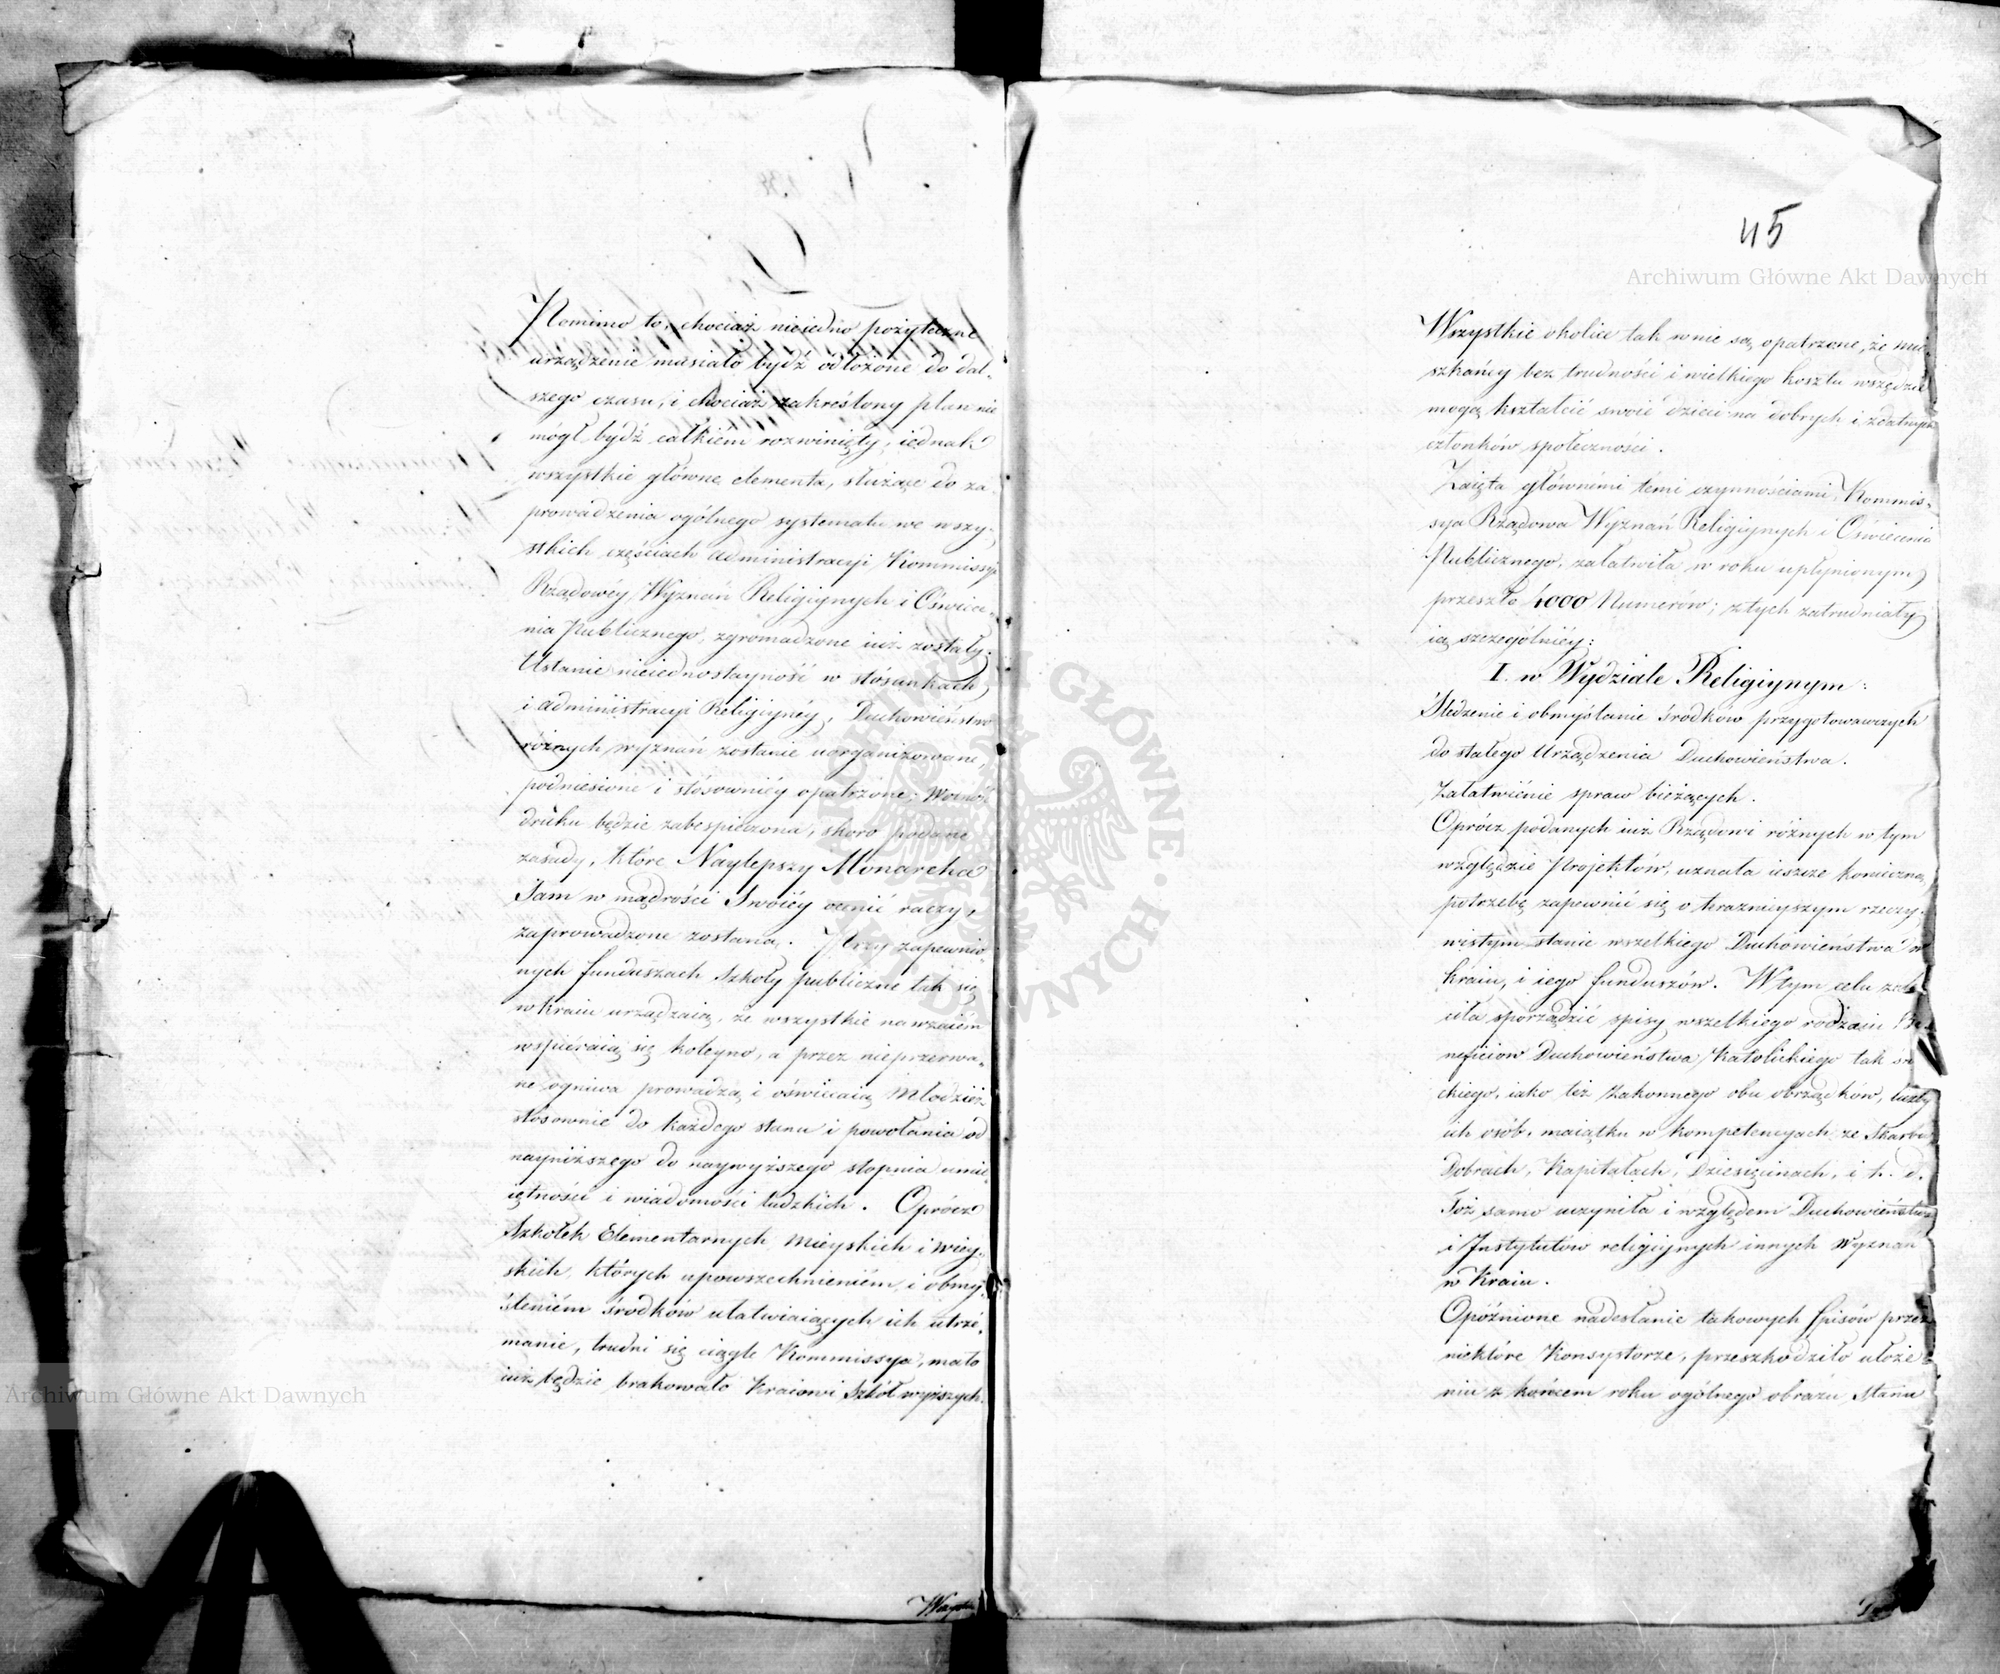 Pomimo to, chociaż nieiedno pożyteczne
urządzenie musiało bydź odłożone do dal-
szego czasu, i chociaż zakreślony plan nie
mógł bydź całkiem rozwinięty, iednak
wszystkie główne elementa, służące do za-
prowadzenia ogólnego systematu we wszy-
stkich częściach administracyi Kommissyi
Rządowéy Wyznań Religiynych i Oświece-
nia Publicznego, zgromadzone iuż zostały.
Ustanie nieiednostayność w stósunkach
i administracyi Religiynéy, Duchowieństwo
różnych wyznań zostanie uorganizowane,
podniesione i stósowniéy opatrzone; Wolność
druku będzie zabespieczona, skoro podane
zasady, które Naylepszy Monarcha
Sam w mądrości Swoiéy ocenić raczy,
zaprowadzone zostaną. Przy zapewnio-
nych funduszach Szkoły publiczne tak się
w Kraiu urządzaią, że wszystkie nawzaiém
wspieraią się koleyno, a przez nieprzerwa-
ne ogniwa prowadzą i oświecaią Młodzież
stósownie do każdego stanu i powołania od
nayniższego do naywyższego stopnia umie-
iętności i wiadomości ludzkich. Oprócz
Szkołek Elementarnych Mieyskich i Wiey-
skich, których upowszechnieniém, i obmy-
śleniém środków ułatwiaiących ich utrzy-
manie, trudni się ciągle Kommissya, mało
iuż będzie brakowało Kraiowi Szkół wyższych.
45
Wszystkie okolice tak równie są opatrzone, że mie-
szkańcy bez trudności i wielkiego kosztu wszędzie
mogą kształcić swoie dzieci na dobrych i zdatnych
członków społeczności.
Zaięta głównémi témi czynnościami Kommis-
sya Rządowa Wyznań Religiynych i Oświecenia
Publicznego, załatwiła w roku upłynionym
przeszło 4000 Numerów; z tych zatrudniały
ią szczególniéy:
I. w Wydziale Religiynym:
Śledzenie i obmyślanie środków przygotowawczych
do stałego Urządzenia Duchowieństwa.
Załatwienie spraw bieżących.
Oprócz podanych iuż Rządowi różnych w tym
względzie Projektów, uznała ieszcze konieczną
potrzebę zapewnić się o teraznieyszym rzeczy-
wistym stanie wszelkiego Duchowieństwa w
kraiu, i iego funduszów. W tym celu zale-
ciła sporządzić spisy wszelkiego rodzaiu Be-
neficiów Duchowieństwa Katolickiego tak świe-
ckiego, iako téż Zakonnego obu obrządków, liczby
ich osób, maiątku w Kompetencyach ze Skarbu
Dobrach, Kapitałach, Dziesięcinach, i t. d.
Toż samo uczyniła i względem Duchowieństwa
i Instytutów religiynych innych Wyznań
w Kraiu.
Opóźnione nadesłanie takowych spisów przez
niektóre Konsystorze, przeszkodziło ułoże-
niu z końcem roku ogólnego obrazu Stanu
Wszystkie
Archiwum Główne Akt Dawnych
Archiwum Główne Akt Dawnych
ARCHIWUM GŁÓWNE AKT DAWNYCH